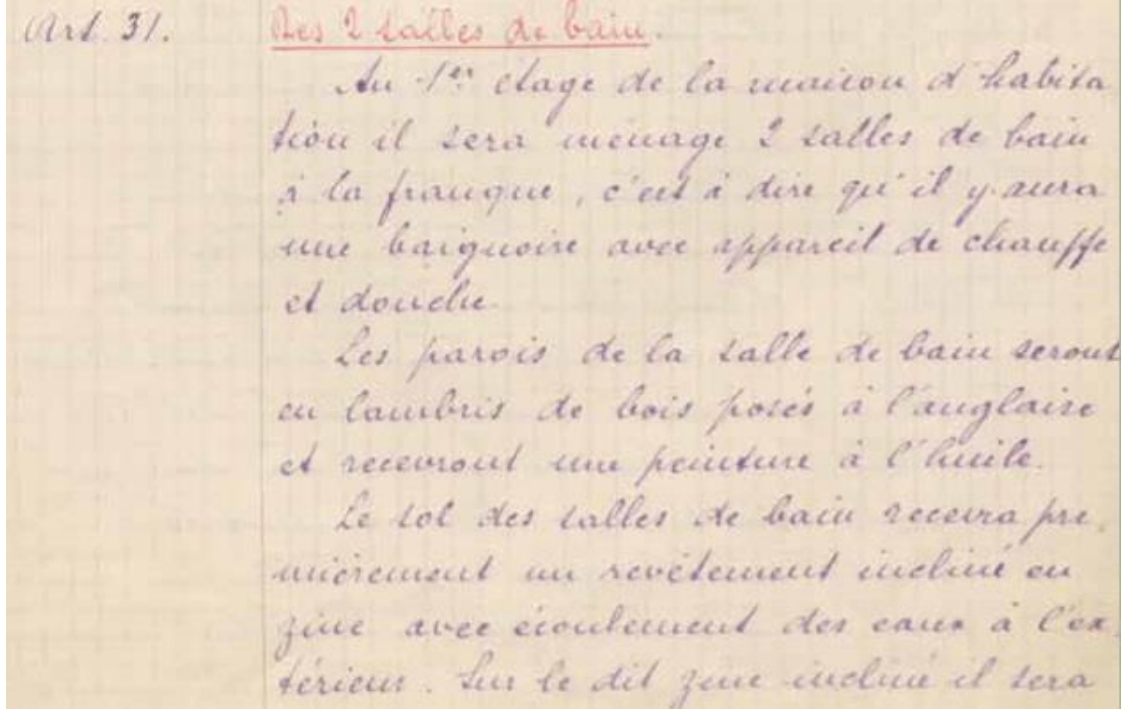 Art. 31. Des 2 salles de bain.
Au 1er étage de la maison d'habita
tion il sera ménagé 2 salles de bain
à la franque, c'est à dire qu'il y aura
une baignoire avec appareil de chauffe
et douche.
Les parois de la salle de bain seront
en lambris de bois posés à l'anglaise
et recevront une peinture à l'huile.
Le sol des salles de bain recevra pre
mièrement un revêtement incliné en
zinc avec écoulement des eaux à l'ex
térieur. Sur le dit zinc incliné il sera